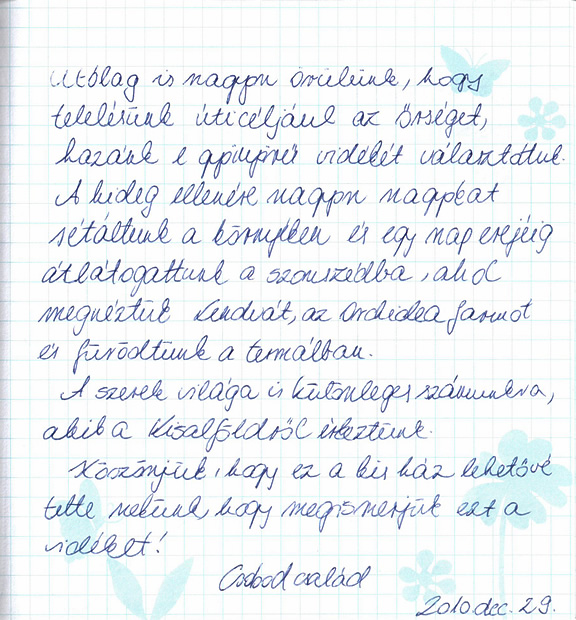 Utólag is nagyon örülünk, hogy
telelésünk úticéljául az Őrséget,
hazánk e gyönyörű vidékét választottuk.
A hideg ellenére nagyon nagyokat
sétáltunk a környéken és egy nap erejéig
átlátogattunk a szomszédba, ahol
megnéztük Lendvát, az Orchidea farmot
és fürödtünk a termálban.
A szerek világa is különleges számunkra,
akik a Kisalföldről érkeztünk.
Köszönjük, hogy ez a kis ház lehetővé
tette nekünk, hogy megismerjük ezt a
vidéket!
család
2010. dec. 29.